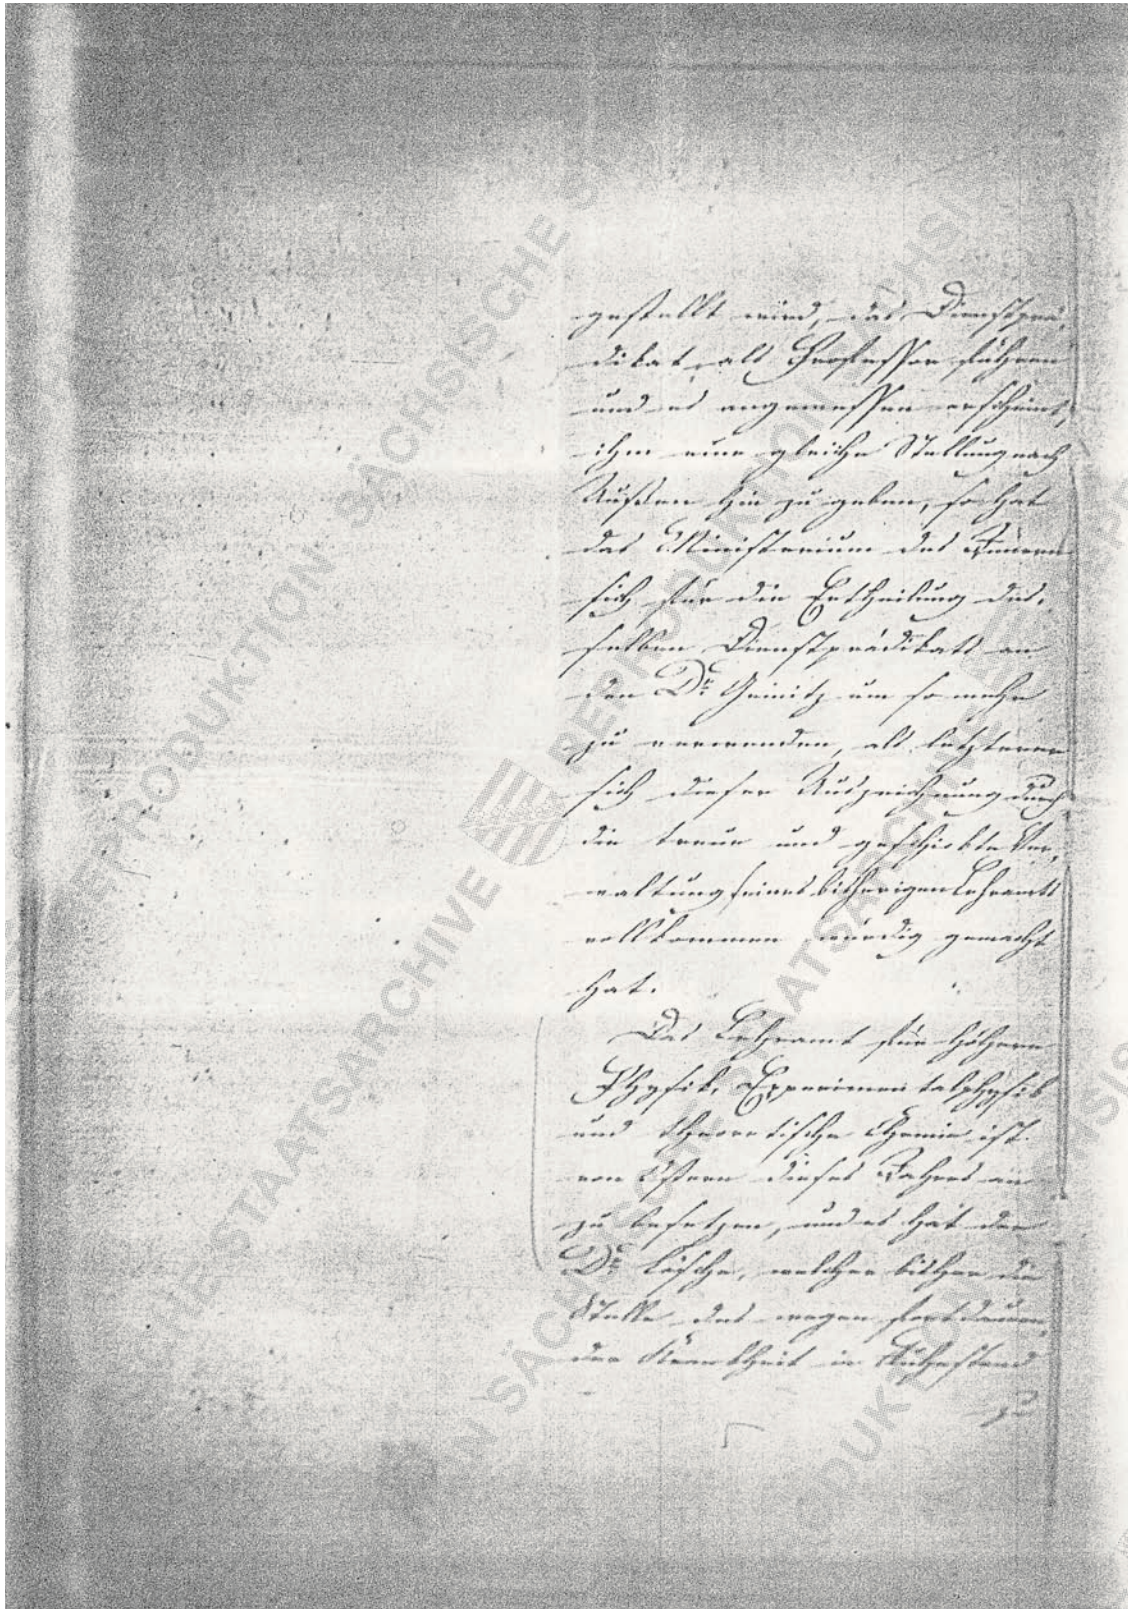 gestellt wird, das Dienstprä-
dikat als Professor führen
und es angemessen erscheint,
ihm eine gleiche Stellung nach
Außen hin zu geben, so hat
das Ministerium des Innern
sich für die Ertheilung des-
selben Dienstprädikats an
den Dr. Geinitz um so mehr
zu verwenden, als letzterer
sich dieser Auszeichnung durch
die treue und geschickte Ver-
waltung seines bisherigen Lehramts
vollkommen würdig gemacht
hat.
Das Lehramt für höhere
Physik, Experimentalphysik
und theoretische Chemie ist
von Ostern dieses Jahres an
zu besetzen, und es hat der
Dr. Lösche, welcher bisher die
Stelle des wegen fortdauern-
der Krankheit in Ruhestand
zu
REPRODUKTION SÄCHSISCHE STAATSARCHIVE